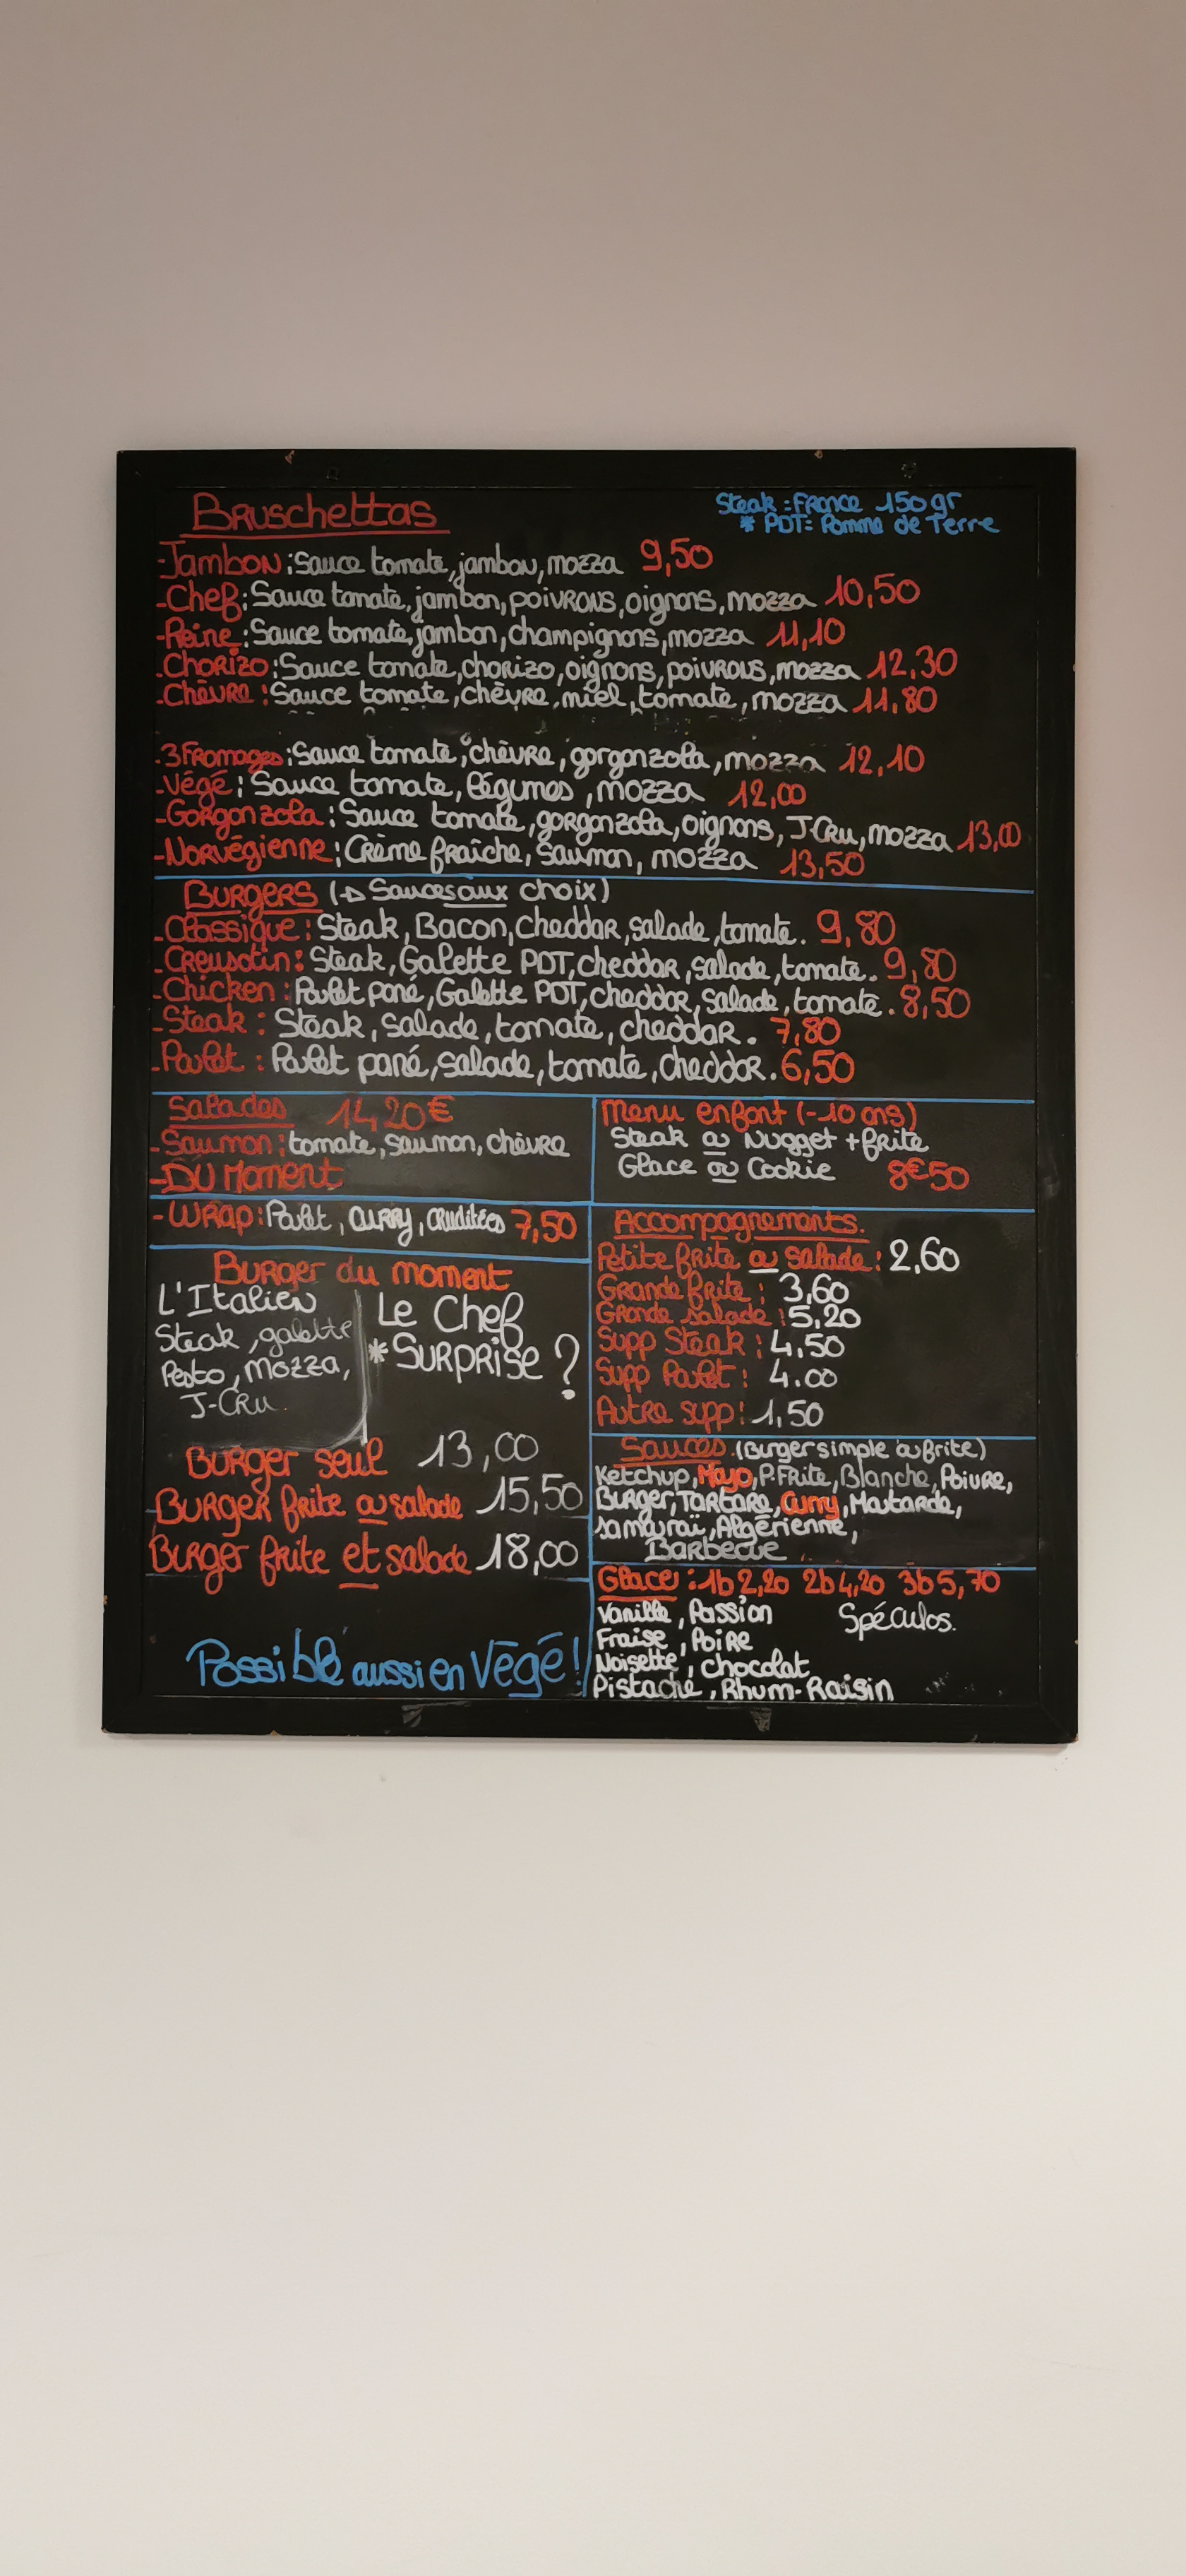 Bruschettas
Steak : France 150 gr
* PDT : Pomme de Terre
- Jambon : Sauce tomate, jambon, mozza 9,50
- Chef : Sauce tomate, jambon, poivrons, oignons, mozza 10,50
- Reine : Sauce tomate, jambon, champignons, mozza 11,10
- Chorizo : Sauce tomate, chorizo, oignons, poivrons, mozza 12,30
- Chèvre : Sauce tomate, chèvre, miel, tomate, mozza 11,80
- 3 Fromages : Sauce tomate, chèvre, gorgonzola, mozza 12,10
- Végé : Sauce tomate, légumes, mozza 12,00
- Gorgonzola : Sauce tomate, gorgonzola, oignons, J.Cru, mozza 13,00
- Norvégienne : Crème fraîche, saumon, mozza 13,50
Burgers (→ Sauces aux choix)
- Classique : Steak, Bacon, cheddar, salade, tomate. 9,80
- Creusotin : Steak, Galette PDT, cheddar, salade, tomate. 9,80
- Chicken : Poulet pané, Galette PDT, cheddar, salade, tomate. 8,50
- Steak : Steak, salade, tomate, cheddar. 7,80
- Poulet : Poulet pané, salade, tomate, cheddar. 6,50
Salades 14,20€
- Saumon : tomate, saumon, chèvre
- DU Moment
Menu enfant (-10 ans)
Steak ou Nugget + frite
Glace ou Cookie 8€50
- Wrap : Poulet, curry, crudités 7,50
Burger du moment
L'Italien
Steak, galette
Pesto, Mozza,
J-Cru.
Le Chef
*Surprise ?
Burger seul 13,00
Burger frite ou salade 15,50
Burger frite et salade 18,00
Possible aussi en Végé !
Accompagnements.
Petite frite ou salade : 2,60
Grande frite : 3,60
Grande salade : 5,20
Supp Steak : 4,50
Supp Poulet : 4.00
Autre supp : 1,50
Sauces (Burger simple ou frite)
Ketchup, Mayo, P.Frite, Blanche, Poivre,
Burger, Tartare, Curry, Moutarde,
Samouraï, Algérienne,
Barbecue
Glace : 1b 2,20 2b 4,20 3b 5,70
Vanille, Passion Spéculos.
Fraise, Poire
Noisette, chocolat
Pistache, Rhum-Raisin